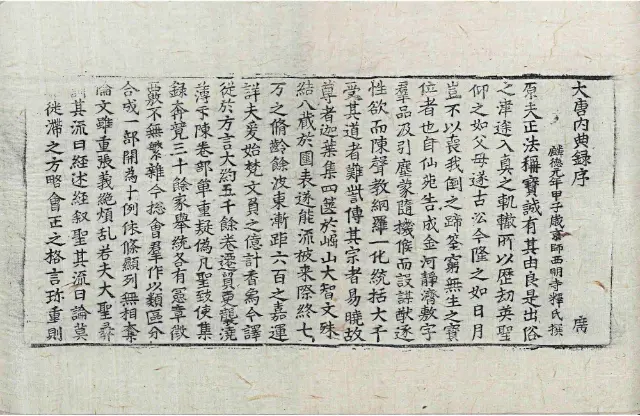 大唐內典錄序 廣
麟德元年甲子歲京師西明寺釋氏撰
原夫正法稱寶誠有其由良是出俗
之津途入真之軌轍所以歷劫英聖
仰之如父母遂古泌今隆之如日月
豈不以喪我倒之蹄筌窮無生之寶
位者也自仙苑生成金河靜濟敷字
羣品及引塵蒙隨機候而設謀猷逐
性欲而陳聲教網羅一化統括大千
受其道者難訾傳其宗者易曉故
尊者迦葉集四篋於崛山大智文殊
結八藏於圍表遂能流被來際終七
万之脩齡餘波東漸距六百之嘉運
詳夫爰始梵文負之億計香象今譯
從於方言大約五千餘卷遷貿更襲澆
薄互陳卷部單重疑偽凡聖致使集
錄奔競三十餘家舉統各有憲章徵
覈不無繁雜今揔會羣作以類區分
合成一部開為十例依條顯列無相奪
倫文雖重張義絕煩乱若夫大聖彝
訓其流曰經述經叙聖其流曰論莫
徙滯之方略會正之格言珎重則